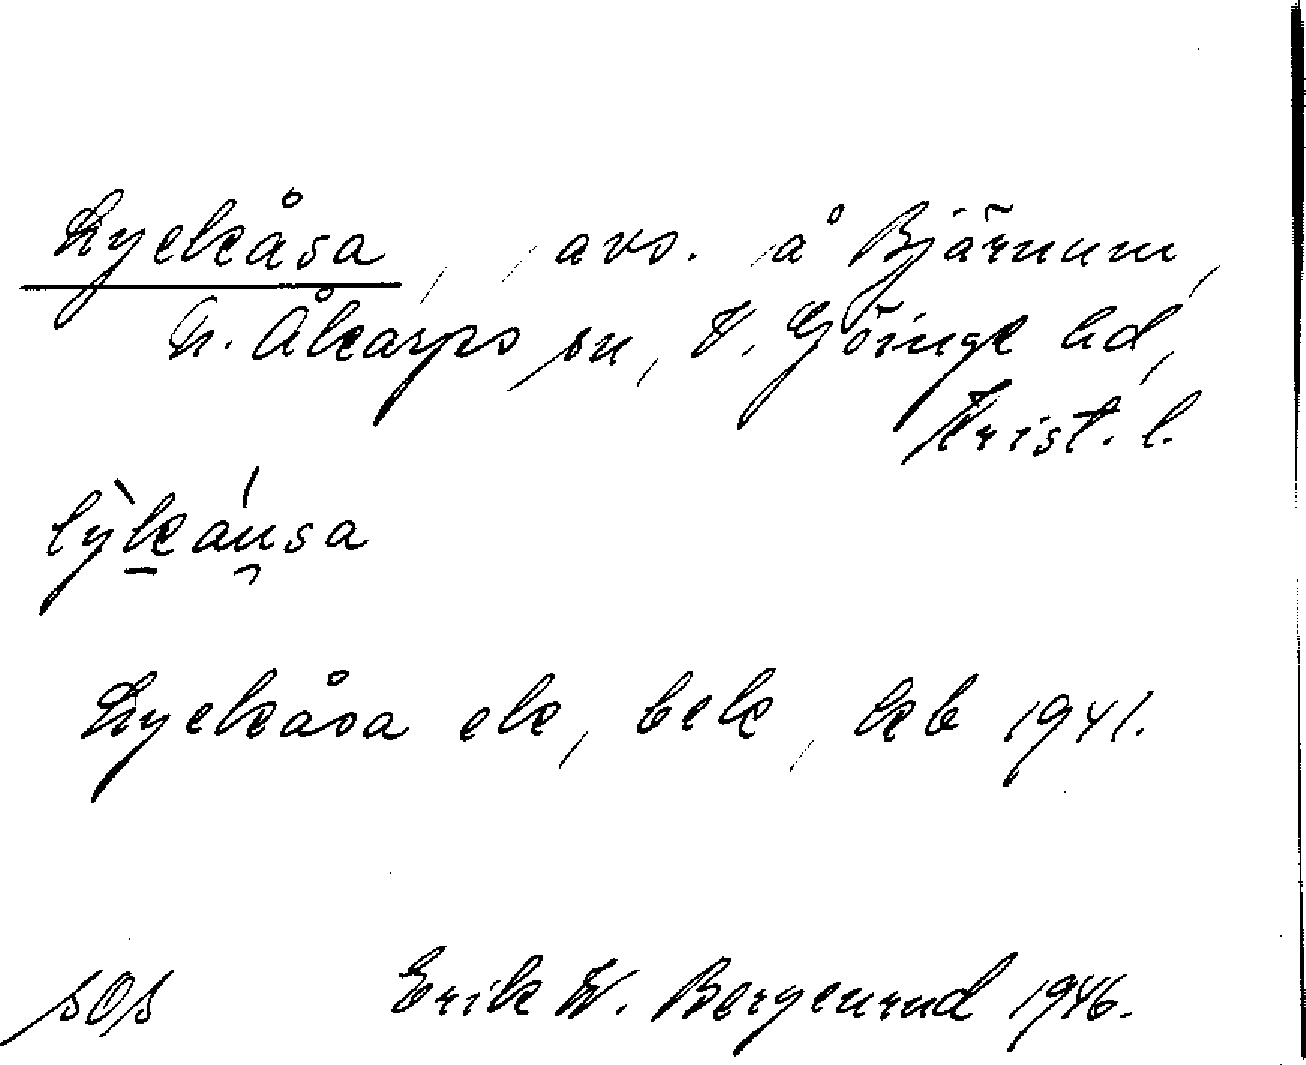 Lyckåsa, , avs. å Bjärnum,
N. Åkarps sn, V. Göinge hd,
Krist. l.
lỳk̲áu̯sa
Lyckåsa ek, bek, kb 1941.
sOs Erik W. Bergenrud 1946.